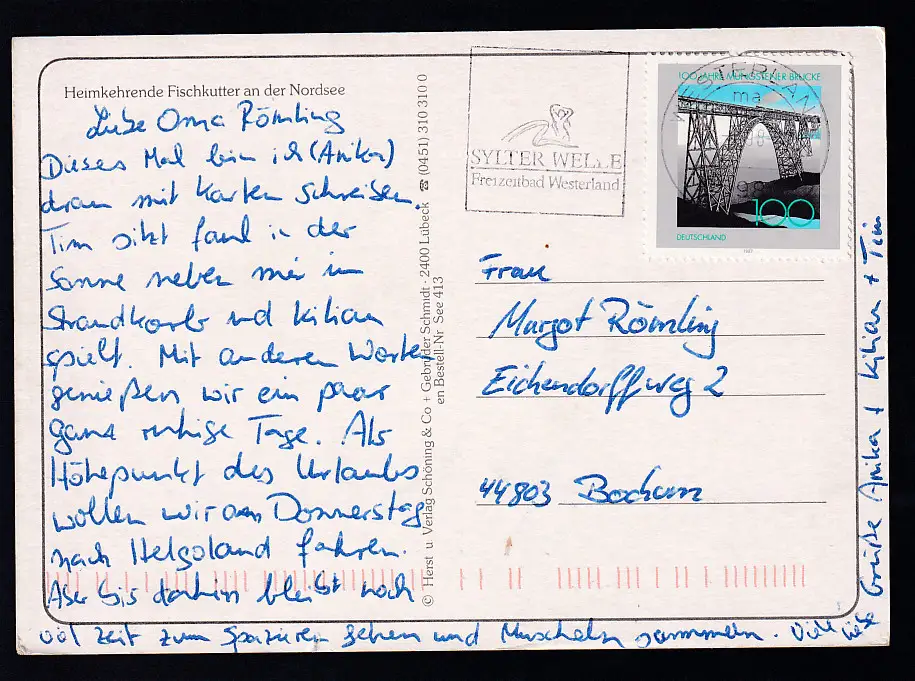 Heimkehrende Fischkutter an der Nordsee
Liebe Oma Römling
Dieses Mal bin ich (Anika)
dran mit Karten schreiben.
Tim sitzt faul in der
Sonne neben mir im
Strandkorb und Kilian
spielt. Mit anderen Worten
genießen wir ein paar
ganz ruhige Tage. Als
Höhepunkt des Urlaubs
wollen wir am Donnerstag
nach Helgoland fahren.
Aber bis dahin bleibt noch
viel Zeit zum Spazieren gehen und Muscheln sammeln. Viele liebe
Grüße Anika + Kilian + Tim
© Herst u. Verlag Schöning & Co + Gebrüder Schmidt · 2400 Lübeck ☎ (0451) 310 310 0
en Bestell-Nr See 413
SYLTER WELLE
Freizeitbad Westerland
WESTERLAND
ma
98
100 JAHRE MÜNGSTENER BRÜCKE
100
DEUTSCHLAND
1997
Frau
Margot Römling
Eichendorffweg 2
44803 Bochum